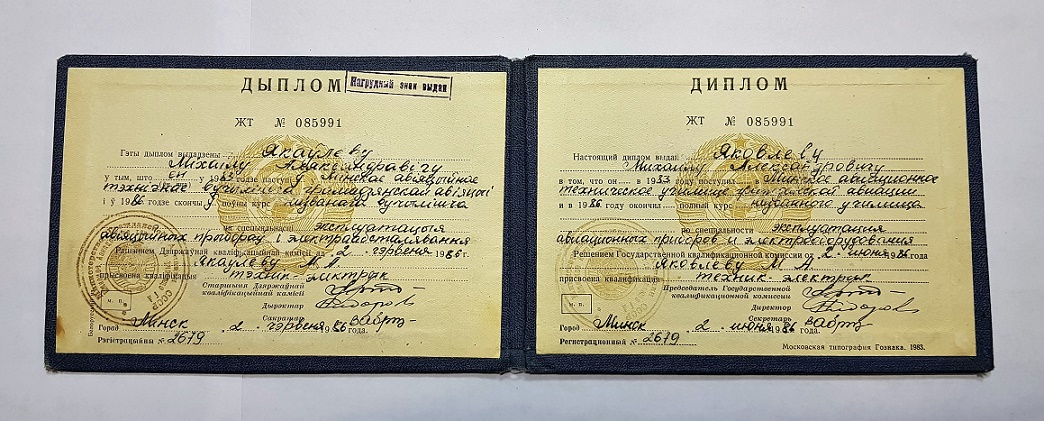 ДЫПЛОМ
Нагрудный знак выдан
ЖТ № 085991
Гэты дыплом выдадзены Якаўлеву
Міхаілу Аляксандравічу
у тым, што он у 1983 годзе паступ у Мінскае авіяцыйнае
тэхнічнае вучылішча грамадзянскай авіяцыі
і ў 1986 годзе скончы ў поўны курс названага вучылішча
па спецыяльнасці эксплуатацыя
авіяцыйных прыбораў і электраабсталявання
Рашэннем Дзяржаўнай кваліфікацыйнай камісіі ад 2 чэрвеня 1986 г.
Якаўлеву М. А.
прысвоена кваліфікацыя тэхнік-электрык
Старшыня Дзяржаўнай
кваліфікацыйнай камісіі
Дырэктар
М. П.
Сакратар
Горад Мінск 2 чэрвеня 1986 года.
Рэгістрацыйны № 2679
ДИПЛОМ
ЖТ № 085991
Настоящий диплом выдан Яковлеву
Михаилу Александровичу
в том, что он в 1983 году поступил в Минское авиационное
техническое училище гражданской авиации
и в 1986 году окончил полный курс названного училища
по специальности эксплуатация
авиационных приборов и электрооборудования
Решением Государственной квалификационной комиссии от 2 июня 1986
Яковлеву М. А.
присвоена квалификация техник-электрик
Председатель Государственной
квалификационной комиссии
Директор
М. П.
Секретарь
Город Минск 2 июня 1986 года.
Регистрационный № 2679
Московская типография Гознака. 1983.